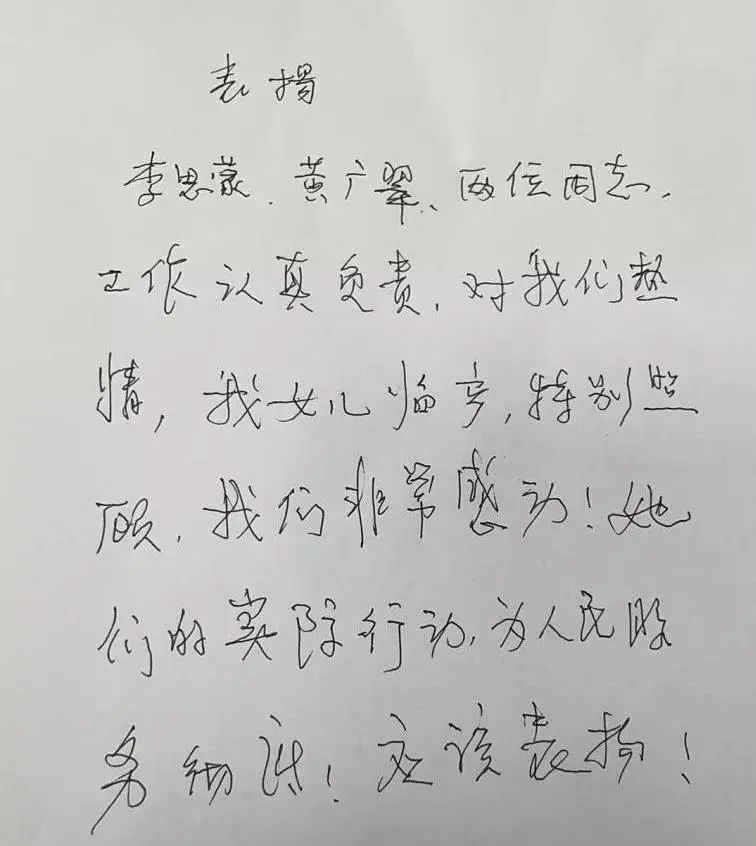 表揚
李思蒙、黄广翠、两位同志,
工作认真负责,对我们热
情,我女儿临产,特别照
顾,我们非常感动!她
们的实际行动,为人民服
务彻底!应该表扬!